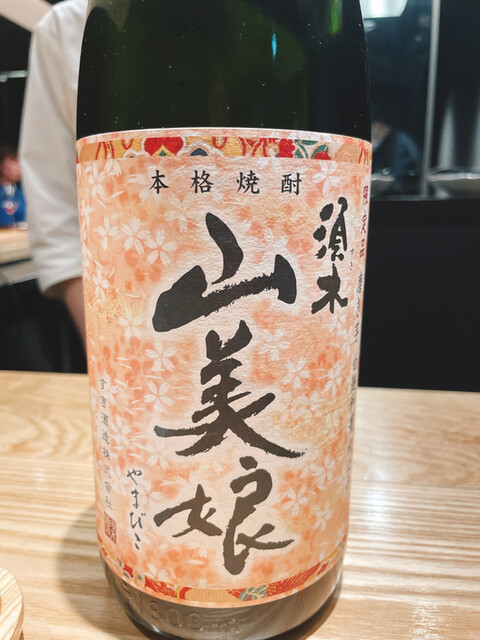 本格焼酎
須木
すき
山美娘
やまびこ
すき酒造株式会社
限定品